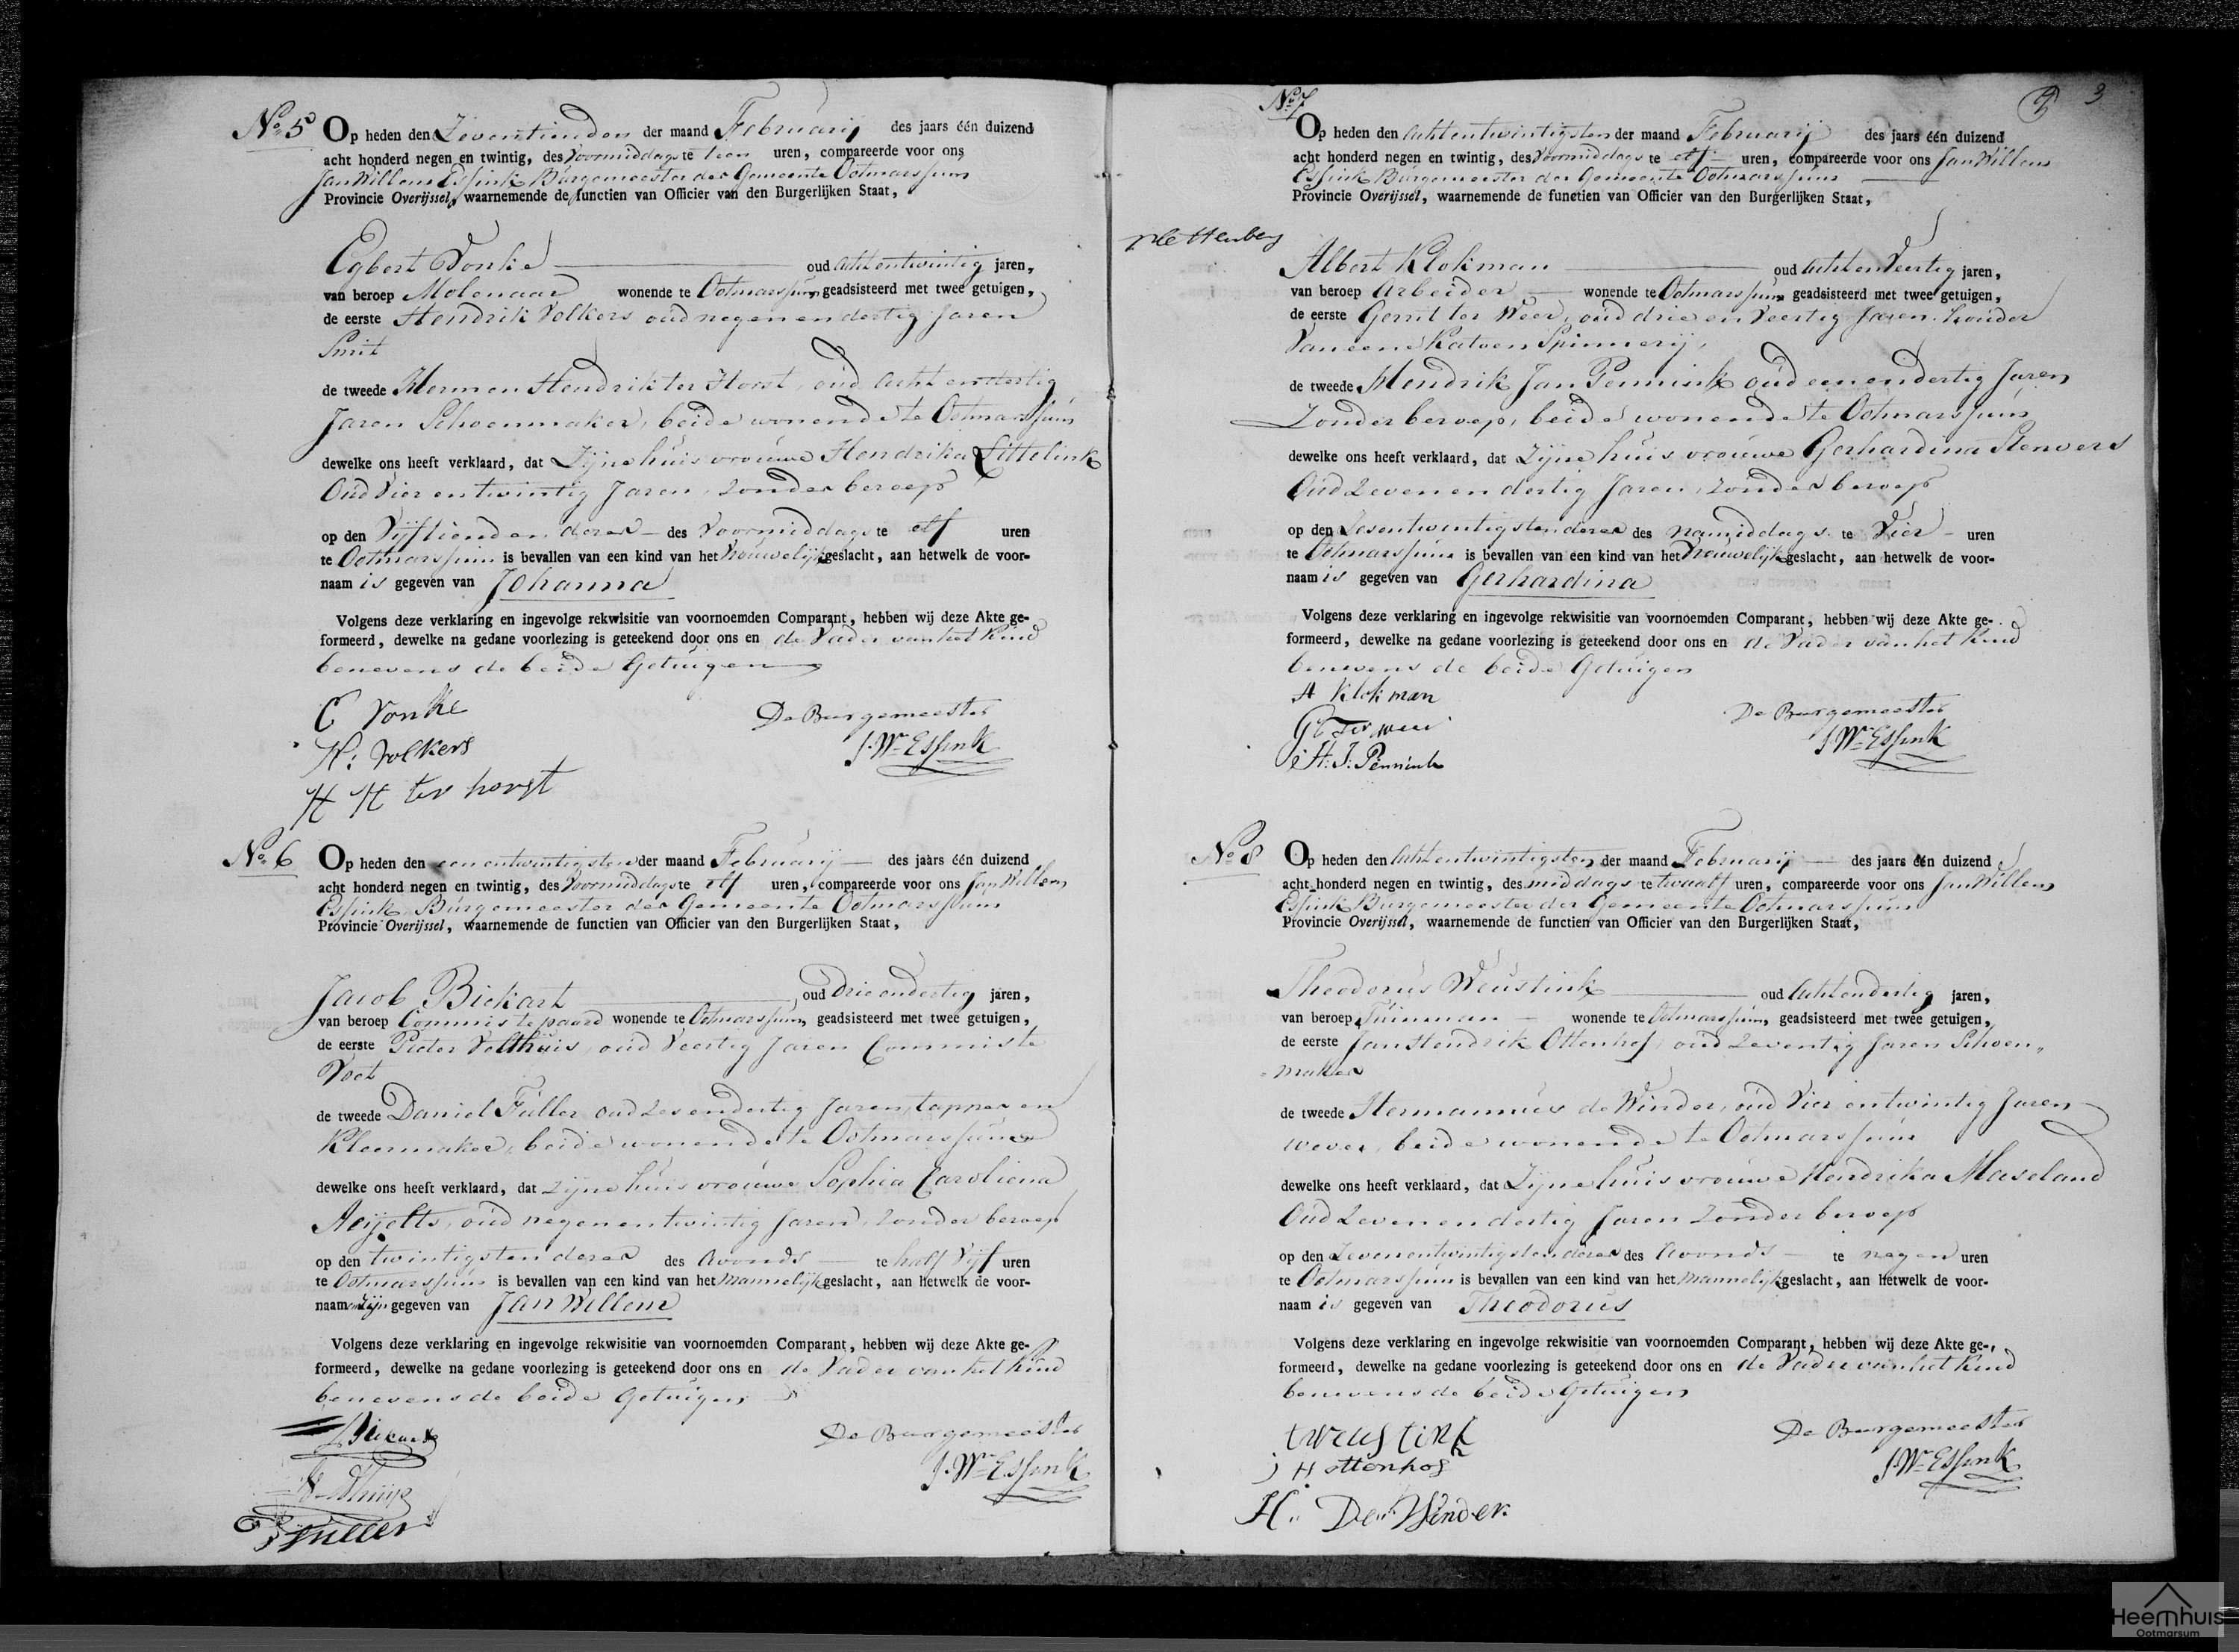 No 5 Op heden den Zeventienden der maand Februarij des jaars één duizend
acht honderd negen en twintig, des Voormiddags te tien uren, compareerde voor ons
Jan Willem Essink Burgemeester der Gemeente Ootmarssum
Provincie Overijssel, waarnemende de functien van Officier van den Burgerlijken Staat,
Egbert Vonke oud acht en twintig jaren,
van beroep Molenaar wonende te Ootmarssum geadsisteerd met twee getuigen,
de eerste Hendrik Volkers oud negen en dertig Jaren
Smit
de tweede Hermen Hendrik ter Horst, oud acht en dertig
Jaren Schoenmaker, beide wonende te Ootmarssum
dewelke ons heeft verklaard, dat Zijne huisvrouwe Hendrika Littelink
Oud Vier en twintig Jaren, zonder beroep
op den Vijftienden dezer des Voormiddags te elf uren
te Ootmarssum is bevallen van een kind van het Vrouwelijk geslacht, aan hetwelk de voor-
naam is gegeven van Johanna
Volgens deze verklaring en ingevolge rekwisitie van voornoemden Comparant, hebben wij deze Akte ge-
formeerd, dewelke na gedane voorlezing is geteekend door ons en de Vader van het Kind
benevens de beide Getuigen
E Vonke
De Burgemeester
H: Volkers
J. Wm Essink
H H ter horst
No 6 Op heden den een entwintigsten der maand Februarij des jaars één duizend
acht honderd negen en twintig, des Voormiddags te elf uren, compareerde voor ons Jan Willem
Essink Burgemeester der Gemeente Ootmarssum
Provincie Overijssel, waarnemende de functien van Officier van den Burgerlijken Staat,
Jacob Bickart oud Drie en dertig jaren,
van beroep Commis te paard wonende te Ootmarssum, geadsisteerd met twee getuigen,
de eerste Pieter Velthuis, oud Veertig Jaren Commis te
Voet
de tweede Daniel Fuller oud Zes en dertig Jaren, tapper en
Kleermaker, beide wonende te Ootmarssum
dewelke ons heeft verklaard, dat zijne huisvrouwe Sophia Caroliena
oud negen en twintig Jaren, zonder beroep
op den twintigsten dezer des Avonds te half Vijf uren
te Ootmarssum is bevallen van een kind van het Mannelijk geslacht, aan hetwelk de voor-
naam zijn gegeven van Jan Willem
Volgens deze verklaring en ingevolge rekwisitie van voornoemden Comparant, hebben wij deze Akte ge-
formeerd, dewelke na gedane voorlezing is geteekend door ons en de Vader van het Kind
benevens de beide Getuigen
De Burgemeester
J. Wm Essink
3
No 7
Op heden den Acht entwintigsten der maand Februarij des jaars één duizend
acht honderd negen en twintig, des Voormiddags te elf uren, compareerde voor ons Jan Willem
Essink Burgemeester der Gemeente Ootmarssum
Provincie Overijssel, waarnemende de functien van Officier van den Burgerlijken Staat,
Plettenberg
Albert Klokman oud Acht en Veertig jaren,
van beroep Arbeider wonende te Ootmarssum geadsisteerd met twee getuigen,
de eerste Gerrit ter Weer, oud drie en Veertig Jaren houder
Van eene Katoen Spinnerij,
de tweede Hendrik Jan Pennink oud een en dertig Jaren
Zonder beroep, beide wonende te Ootmarssum
dewelke ons heeft verklaard, dat Zijne huisvrouwe Gerhardina Stenvers
Oud Zeven en dertig Jaren, zonder beroep
op den Zesentwintigsten dezer des namiddags te Vier uren
te Ootmarssum is bevallen van een kind van het Vrouwelijk geslacht, aan hetwelk de voor-
naam is gegeven van Gerhardina
Volgens deze verklaring en ingevolge rekwisitie van voornoemden Comparant, hebben wij deze Akte ge-
formeerd, dewelke na gedane voorlezing is geteekend door ons en de Vader van het Kind
benevens de beide Getuigen
A Klokman
De Burgemeester
J. Wm Essink
H: J: Pennink
No 8 Op heden den Acht entwintigsten der maand Februarij des jaars één duizend
acht honderd negen en twintig, des middags te twaalf uren, compareerde voor ons Jan Willem
Essink Burgemeester der Gemeente Ootmarssum
Provincie Overijssel, waarnemende de functien van Officier van den Burgerlijken Staat,
Theodorus Weustink oud Acht en dertig jaren,
van beroep Tuinman wonende te Ootmarssum, geadsisteerd met twee getuigen,
de eerste Jan Hendrik Ottenhof, oud Zeventig Jaren Schoen
maker
de tweede Hermannus de Winder, oud Vier entwintig Jaren
wever, beide wonende te Ootmarssum
dewelke ons heeft verklaard, dat Zijne huisvrouwe Hendrika Maseland
Oud Zeven en dertig Jaren zonder beroep
op den Zevenentwintigsten dezer des Avonds te negen uren
te Ootmarssum is bevallen van een kind van het Mannelijk geslacht, aan hetwelk de voor-
naam is gegeven van Theodorus
Volgens deze verklaring en ingevolge rekwisitie van voornoemden Comparant, hebben wij deze Akte ge-
formeerd, dewelke na gedane voorlezing is geteekend door ons en de Vader van het Kind
benevens de beide Getuigen
t weustink
De Burgemeester
J H ottenhof
J. Wm Essink
H. De Winder.
Heemhuis
Ootmarsum